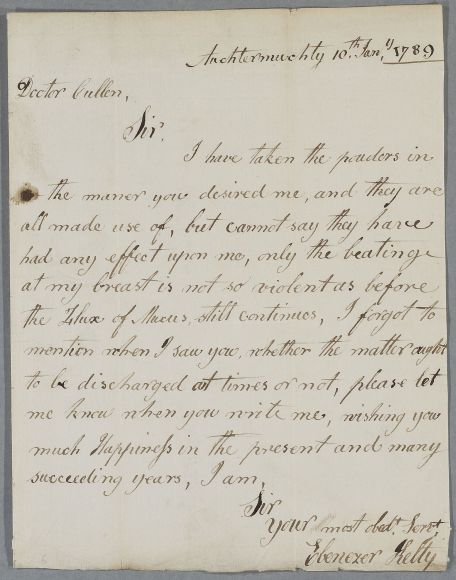 Auchtermuchty 10.th Jan.ry 1789
Doctor Cullen,
Sir.
I have taken the pouders in
the maner you desired me, and they are
all made use of, but cannot say they have
had any effect upon me, only the beating
at my breast is not so violent as before
the Flux of Mucus, still continues, I forgot to
mention when I saw you, whether the matter ought
to be discharged at times or not, please let
me know when you write me, wishing you
much Happiness in the present and many
succeeding years, I am,
Sir
your most obed.t Serv.t
Ebenezer Kelty